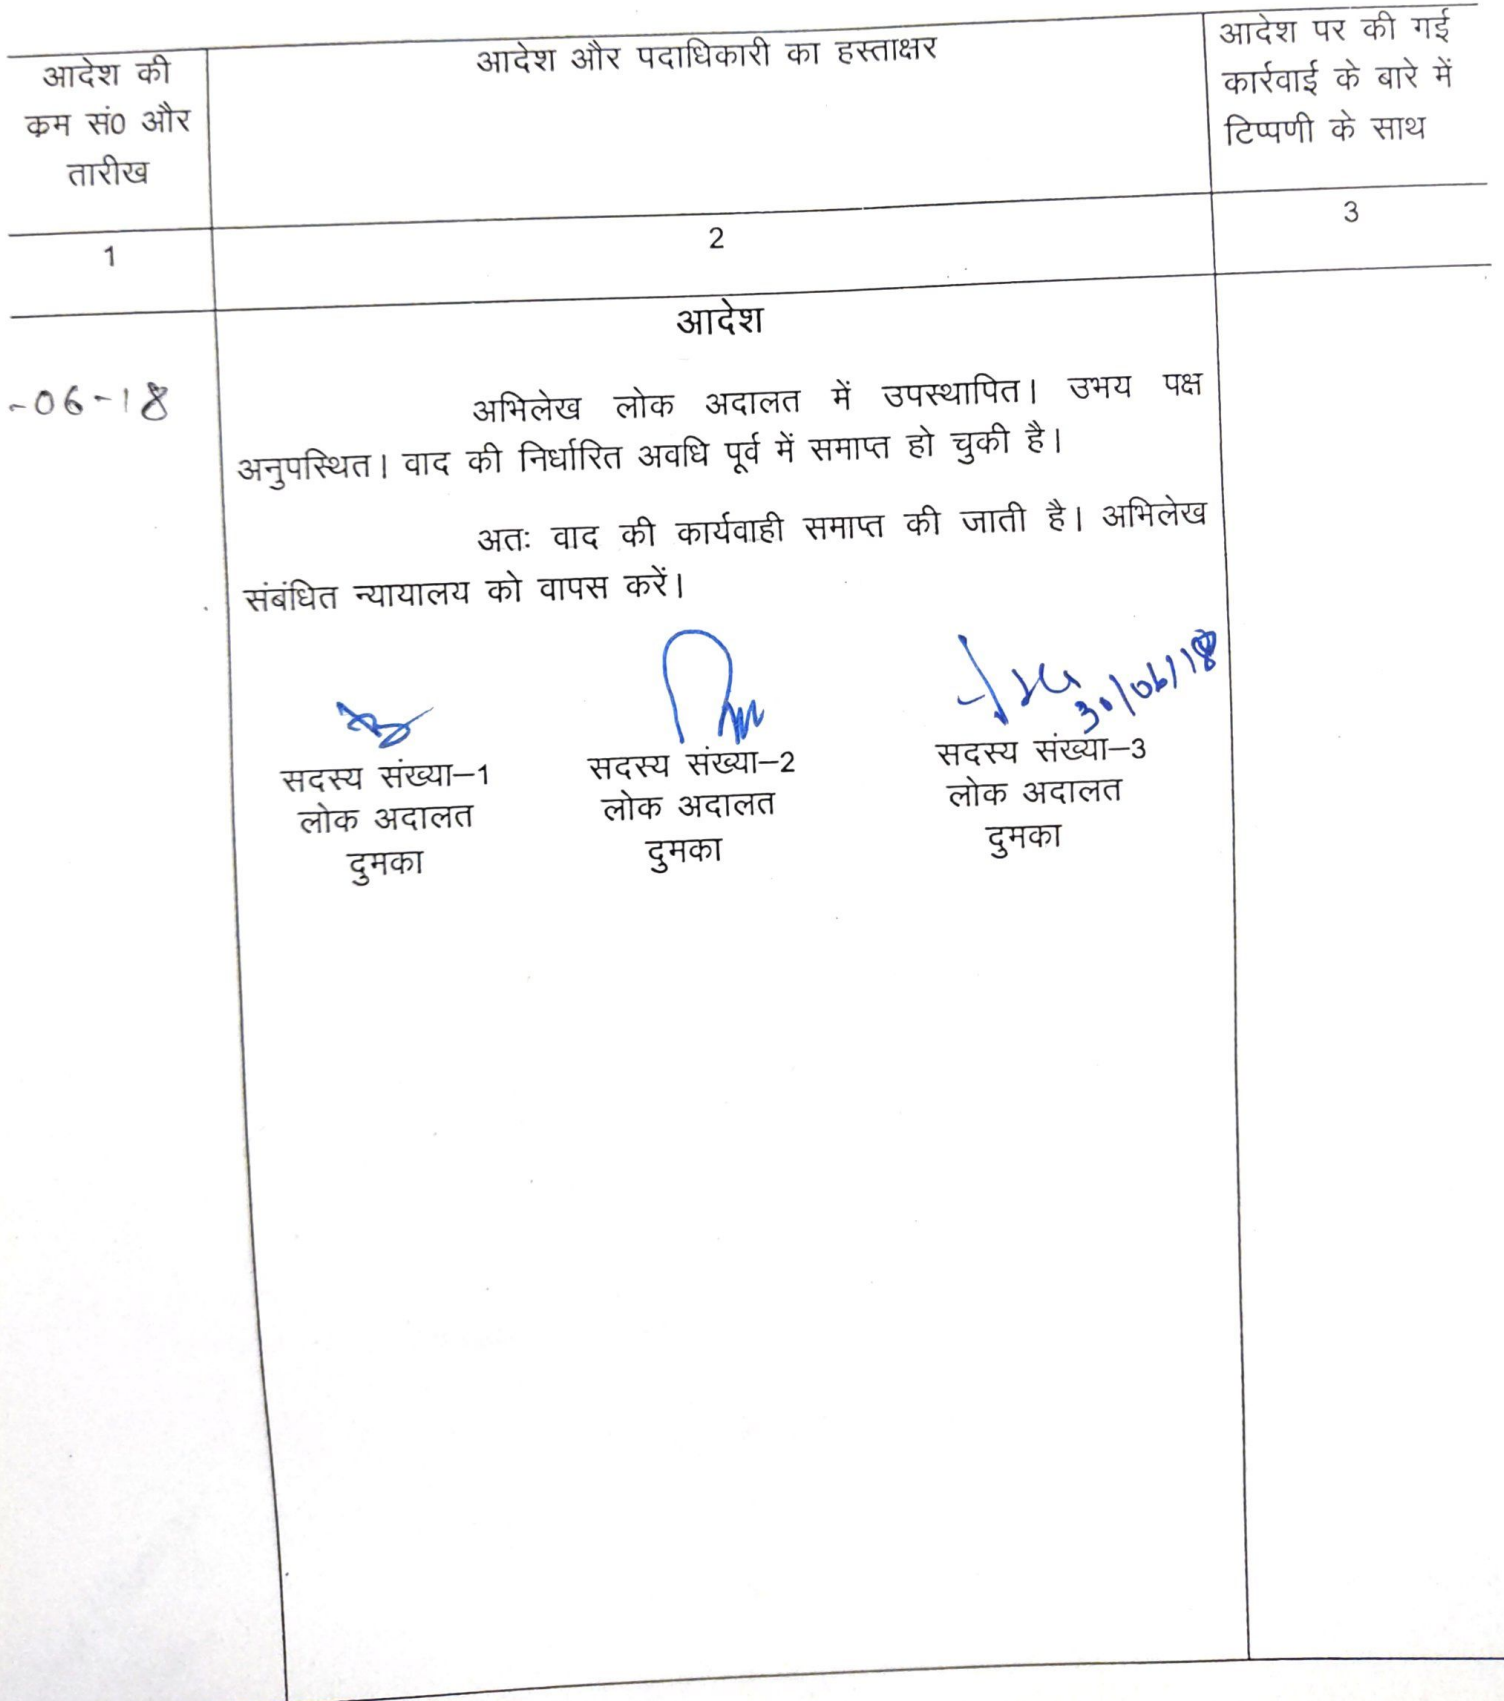 आदेश की
क्रम सं0 और
तारीख
आदेश और पदाधिकारी का हस्ताक्षर
आदेश पर की गई
कार्रवाई के बारे में
टिप्पणी के साथ
1
2
3
आदेश
-06-18
अभिलेख लोक अदालत में उपस्थापित। उभय पक्ष
अनुपस्थित। वाद की निर्धारित अवधि पूर्व में समाप्त हो चुकी है।
अतः वाद की कार्यवाही समाप्त की जाती है। अभिलेख
संबंधित न्यायालय को वापस करें।
30/06/18
सदस्य संख्या–1
लोक अदालत
दुमका
सदस्य संख्या–2
लोक अदालत
दुमका
सदस्य संख्या–3
लोक अदालत
दुमका